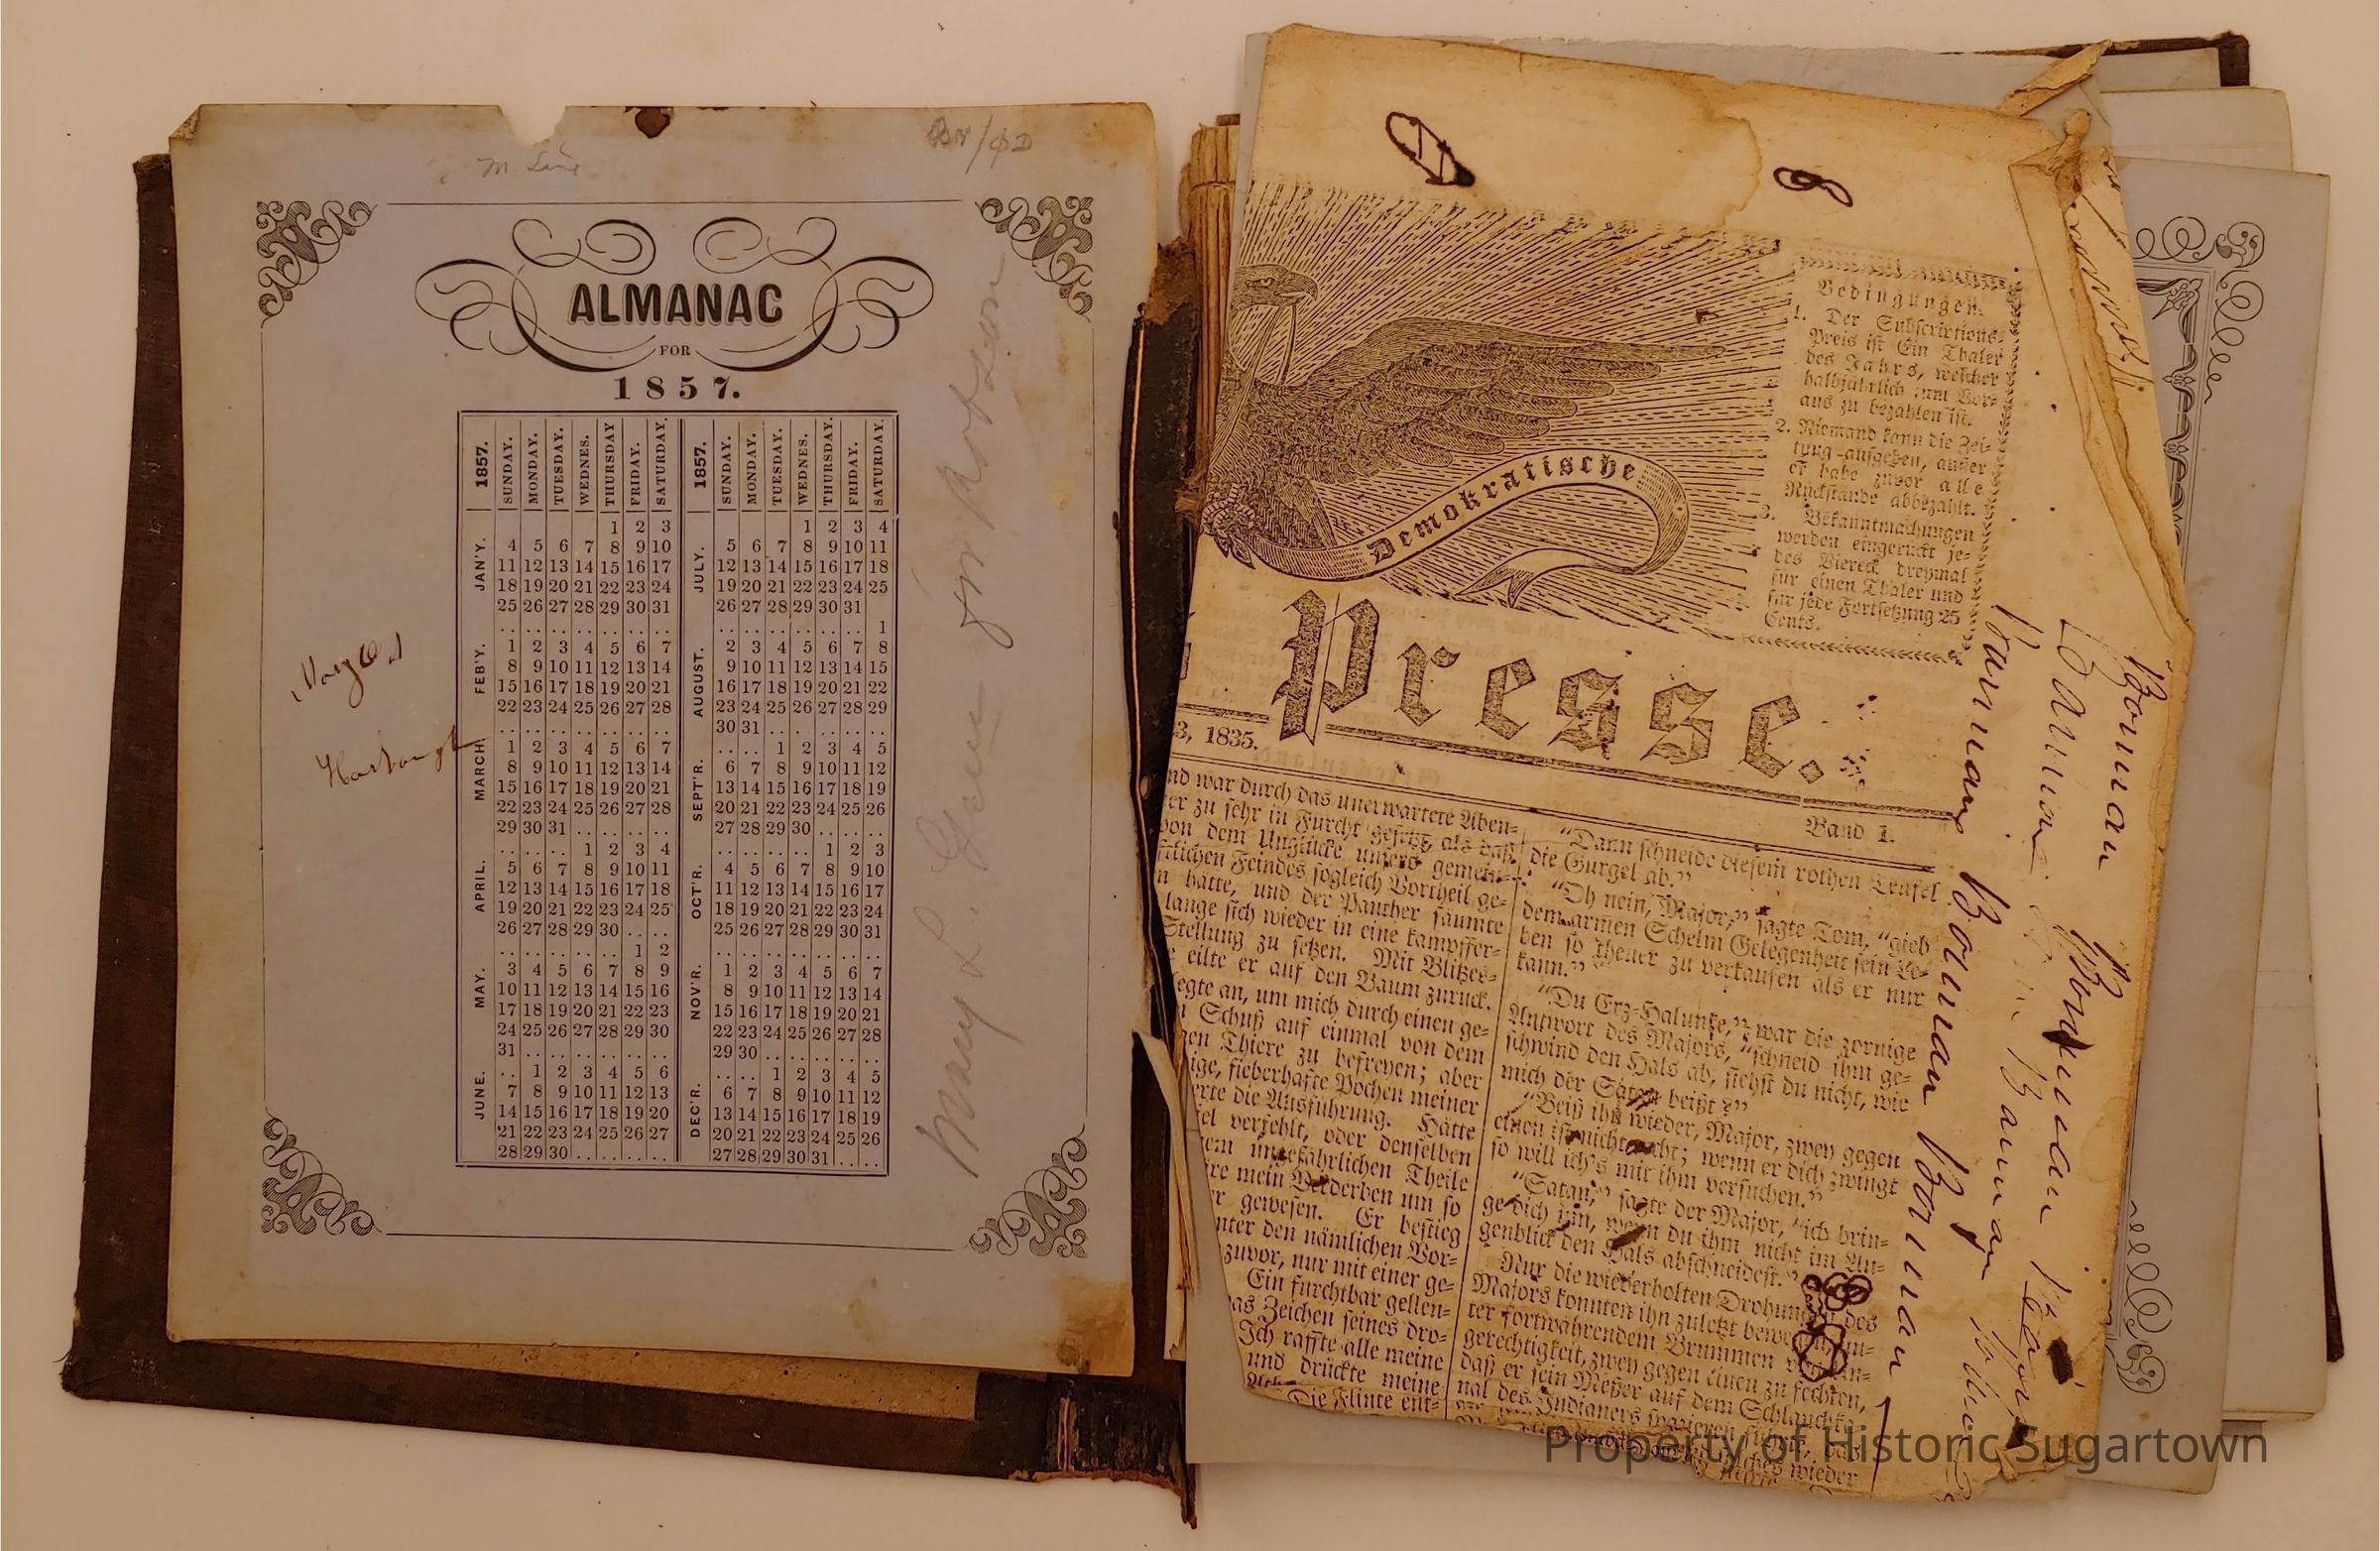 M
ALMANAC
FOR
1857.
1857. SUNDAY. MONDAY. TUESDAY. WEDNES. THURSDAY FRIDAY. SATURDAY.
JAN'Y.
1 2 3
4 5 6 7 8 9 10
11 12 13 14 15 16 17
18 19 20 21 22 23 24
25 26 27 28 29 30 31
.. .. .. .. .. .. ..
FEB'Y.
1 2 3 4 5 6 7
8 9 10 11 12 13 14
15 16 17 18 19 20 21
22 23 24 25 26 27 28
.. .. .. .. .. .. ..
MARCH
1 2 3 4 5 6 7
8 9 10 11 12 13 14
15 16 17 18 19 20 21
22 23 24 25 26 27 28
29 30 31 .. .. .. ..
APRIL.
.. .. .. 1 2 3 4
5 6 7 8 9 10 11
12 13 14 15 16 17 18
19 20 21 22 23 24 25
26 27 28 29 30 .. ..
MAY.
.. .. .. .. .. 1 2
3 4 5 6 7 8 9
10 11 12 13 14 15 16
17 18 19 20 21 22 23
24 25 26 27 28 29 30
31 .. .. .. .. .. ..
JUNE.
.. 1 2 3 4 5 6
7 8 9 10 11 12 13
14 15 16 17 18 19 20
21 22 23 24 25 26 27
28 29 30 .. .. .. ..
1857. SUNDAY. MONDAY. TUESDAY. WEDNES. THURSDAY. FRIDAY. SATURDAY.
JULY.
1 2 3 4
5 6 7 8 9 10 11
12 13 14 15 16 17 18
19 20 21 22 23 24 25
26 27 28 29 30 31
AUGUST.
.. .. .. .. .. .. 1
2 3 4 5 6 7 8
9 10 11 12 13 14 15
16 17 18 19 20 21 22
23 24 25 26 27 28 29
30 31 .. .. .. .. ..
SEPT'R.
.. .. 1 2 3 4 5
6 7 8 9 10 11 12
13 14 15 16 17 18 19
20 21 22 23 24 25 26
27 28 29 30 .. .. ..
OCT'R.
.. .. .. .. 1 2 3
4 5 6 7 8 9 10
11 12 13 14 15 16 17
18 19 20 21 22 23 24
25 26 27 28 29 30 31
.. .. .. .. .. .. ..
NOV'R.
1 2 3 4 5 6 7
8 9 10 11 12 13 14
15 16 17 18 19 20 21
22 23 24 25 26 27 28
29 30 .. .. .. .. ..
DEC'R.
.. .. 1 2 3 4 5
6 7 8 9 10 11 12
13 14 15 16 17 18 19
20 21 22 23 24 25 26
27 28 29 30 31 .. ..
Mary L.
Demokratische
Presse.
3, 1835.
Band 1.
Bedingungen.
1. Der Subscriptions-
Preis ist Ein Thaler
des Jahrs, welcher
halbjährlich zum Vor-
aus zu bezahlen ist.
2. Niemand kann die Zei-
tung aufgeben, außer
er habe zuvor alle
Rückstände abbezahlt.
3. Bekanntmachungen
werden eingerückt je-
des Viereck dreymal
für einen Thaler und
für jede Fortsetzung 25
Cents.
nd war durch das unerwartete Aben-
er zu sehr in Furcht gesetzt, als daß
von dem Unglücke unsers gemein-
ftlichen Feindes sogleich Vortheil ge-
n hätte, und der Panther säumte
lange sich wieder in eine kampffer-
Stellung zu setzen. Mit Blitzes-
e eilte er auf den Baum zurück.
egte an, um mich durch einen ge-
n Schuß auf einmal von dem
gen Thiere zu befreyen; aber
ige, fieberhafte Pochen meiner
erte die Ausführung. Hätte
iel verfehlt, oder denselben
em ungefährlichen Theile
re mein Verderben um so
er gewesen. Er bestieg
nter den nämlichen Vor-
zuvor, nur mit einer ge-
Ein furchtbar gellen-
as Zeichen seines dro-
Ich raffte alle meine
und drückte meine
Die Flinte ent-
"Dann schneide diesem rothen Teufel
die Gurgel ab."
"Oh nein, Major," sagte Tom, "gieb
dem armen Schelm Gelegenheit sein Le-
ben so theuer zu verkaufen als er nur
kann."
"Du Erz-Halunke," war die zornige
Antwort des Majors, "schneid ihm ge-
schwind den Hals ab, siehst du nicht, wie
mich der Satan beißt?"
"Beiß ihn wieder, Major, zwey gegen
einen ist nicht recht; wenn er dich zwingt
so will ich's mit ihm versuchen."
"Satan," sagte der Major, "ich brin-
ge dich um, wenn du ihm nicht im Au-
genblick den Hals abschneidest."
Nur die wiederholten Drohungen des
Majors konnten ihn zuletzt bewegen, un-
ter fortwährendem Brummen
gerechtigkeit, zwey gegen einen zu fechten,
daß er sein Meßer auf dem
nal des Indianers spazieren
wieder
Bauman Bouman Bouman
Bouman
Property of Historic Sugartown